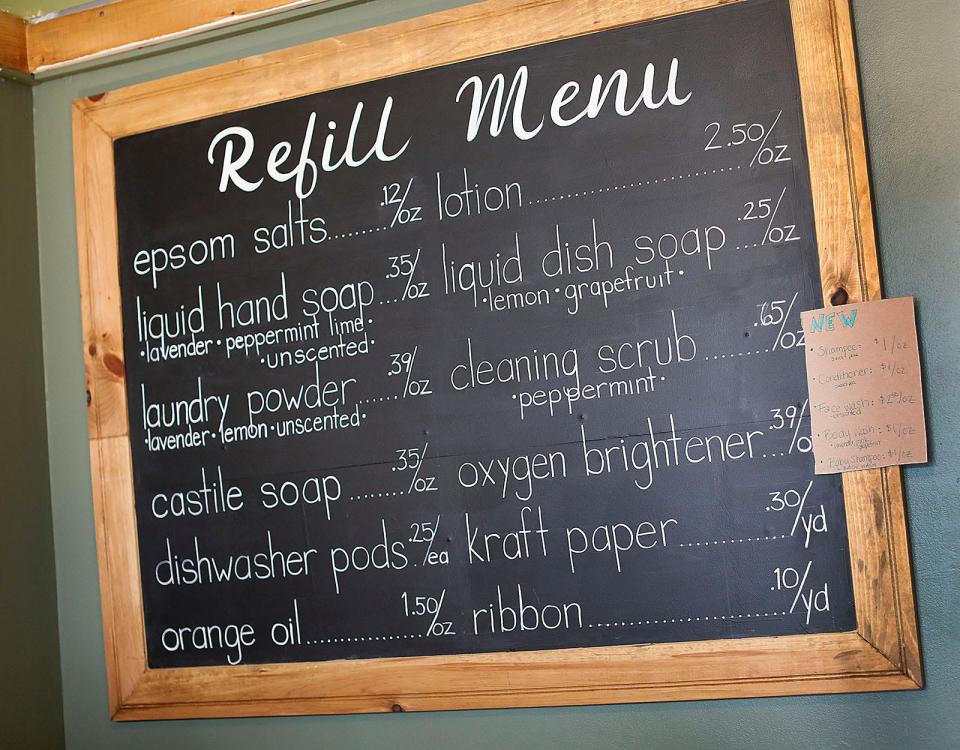 Refill Menu
epsom salts........ .12/oz
liquid hand soap .... .35/oz
·lavender·peppermint lime·
·unscented·
laundry powder ....... .39/oz
·lavender·lemon·unscented·
castile soap ........ .35/oz
dishwasher pods .. .25/ea
orange oil............... 1.50/oz
lotion............................ 2.50/oz
liquid dish soap .... .25/oz
·lemon·grapefruit·
cleaning scrub .......... .65/oz
·peppermint·
oxygen brightener... .39/o
kraft paper................ .30/yd
ribbon............................ .10/yd
NEW
· Shampoo: $1/oz
· Conditioner: $1/oz
· Face wash: /oz
unscented
· Body Wash: $1/oz
· Baby Shampoo: $1/oz